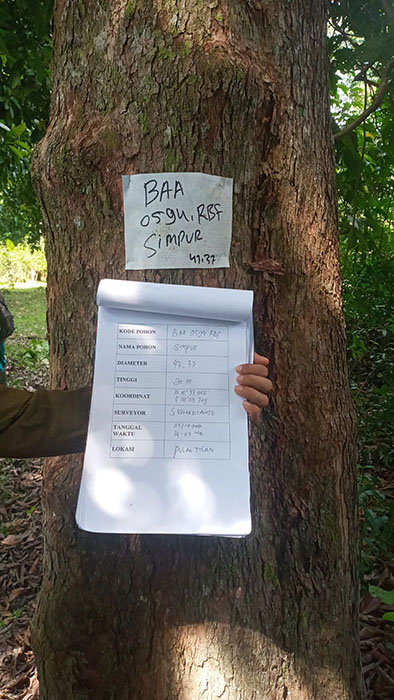 BAA
0594.RBF
Simpur
47.37
KODE POHON BAA 0594 RBF
NAMA POHON Simpur
DIAMETER 47.37
TINGGI 20 m
KOORDINAT
SURVEYOR SUHARDIANTO
TANGGAL
WAKTU
LOKASI